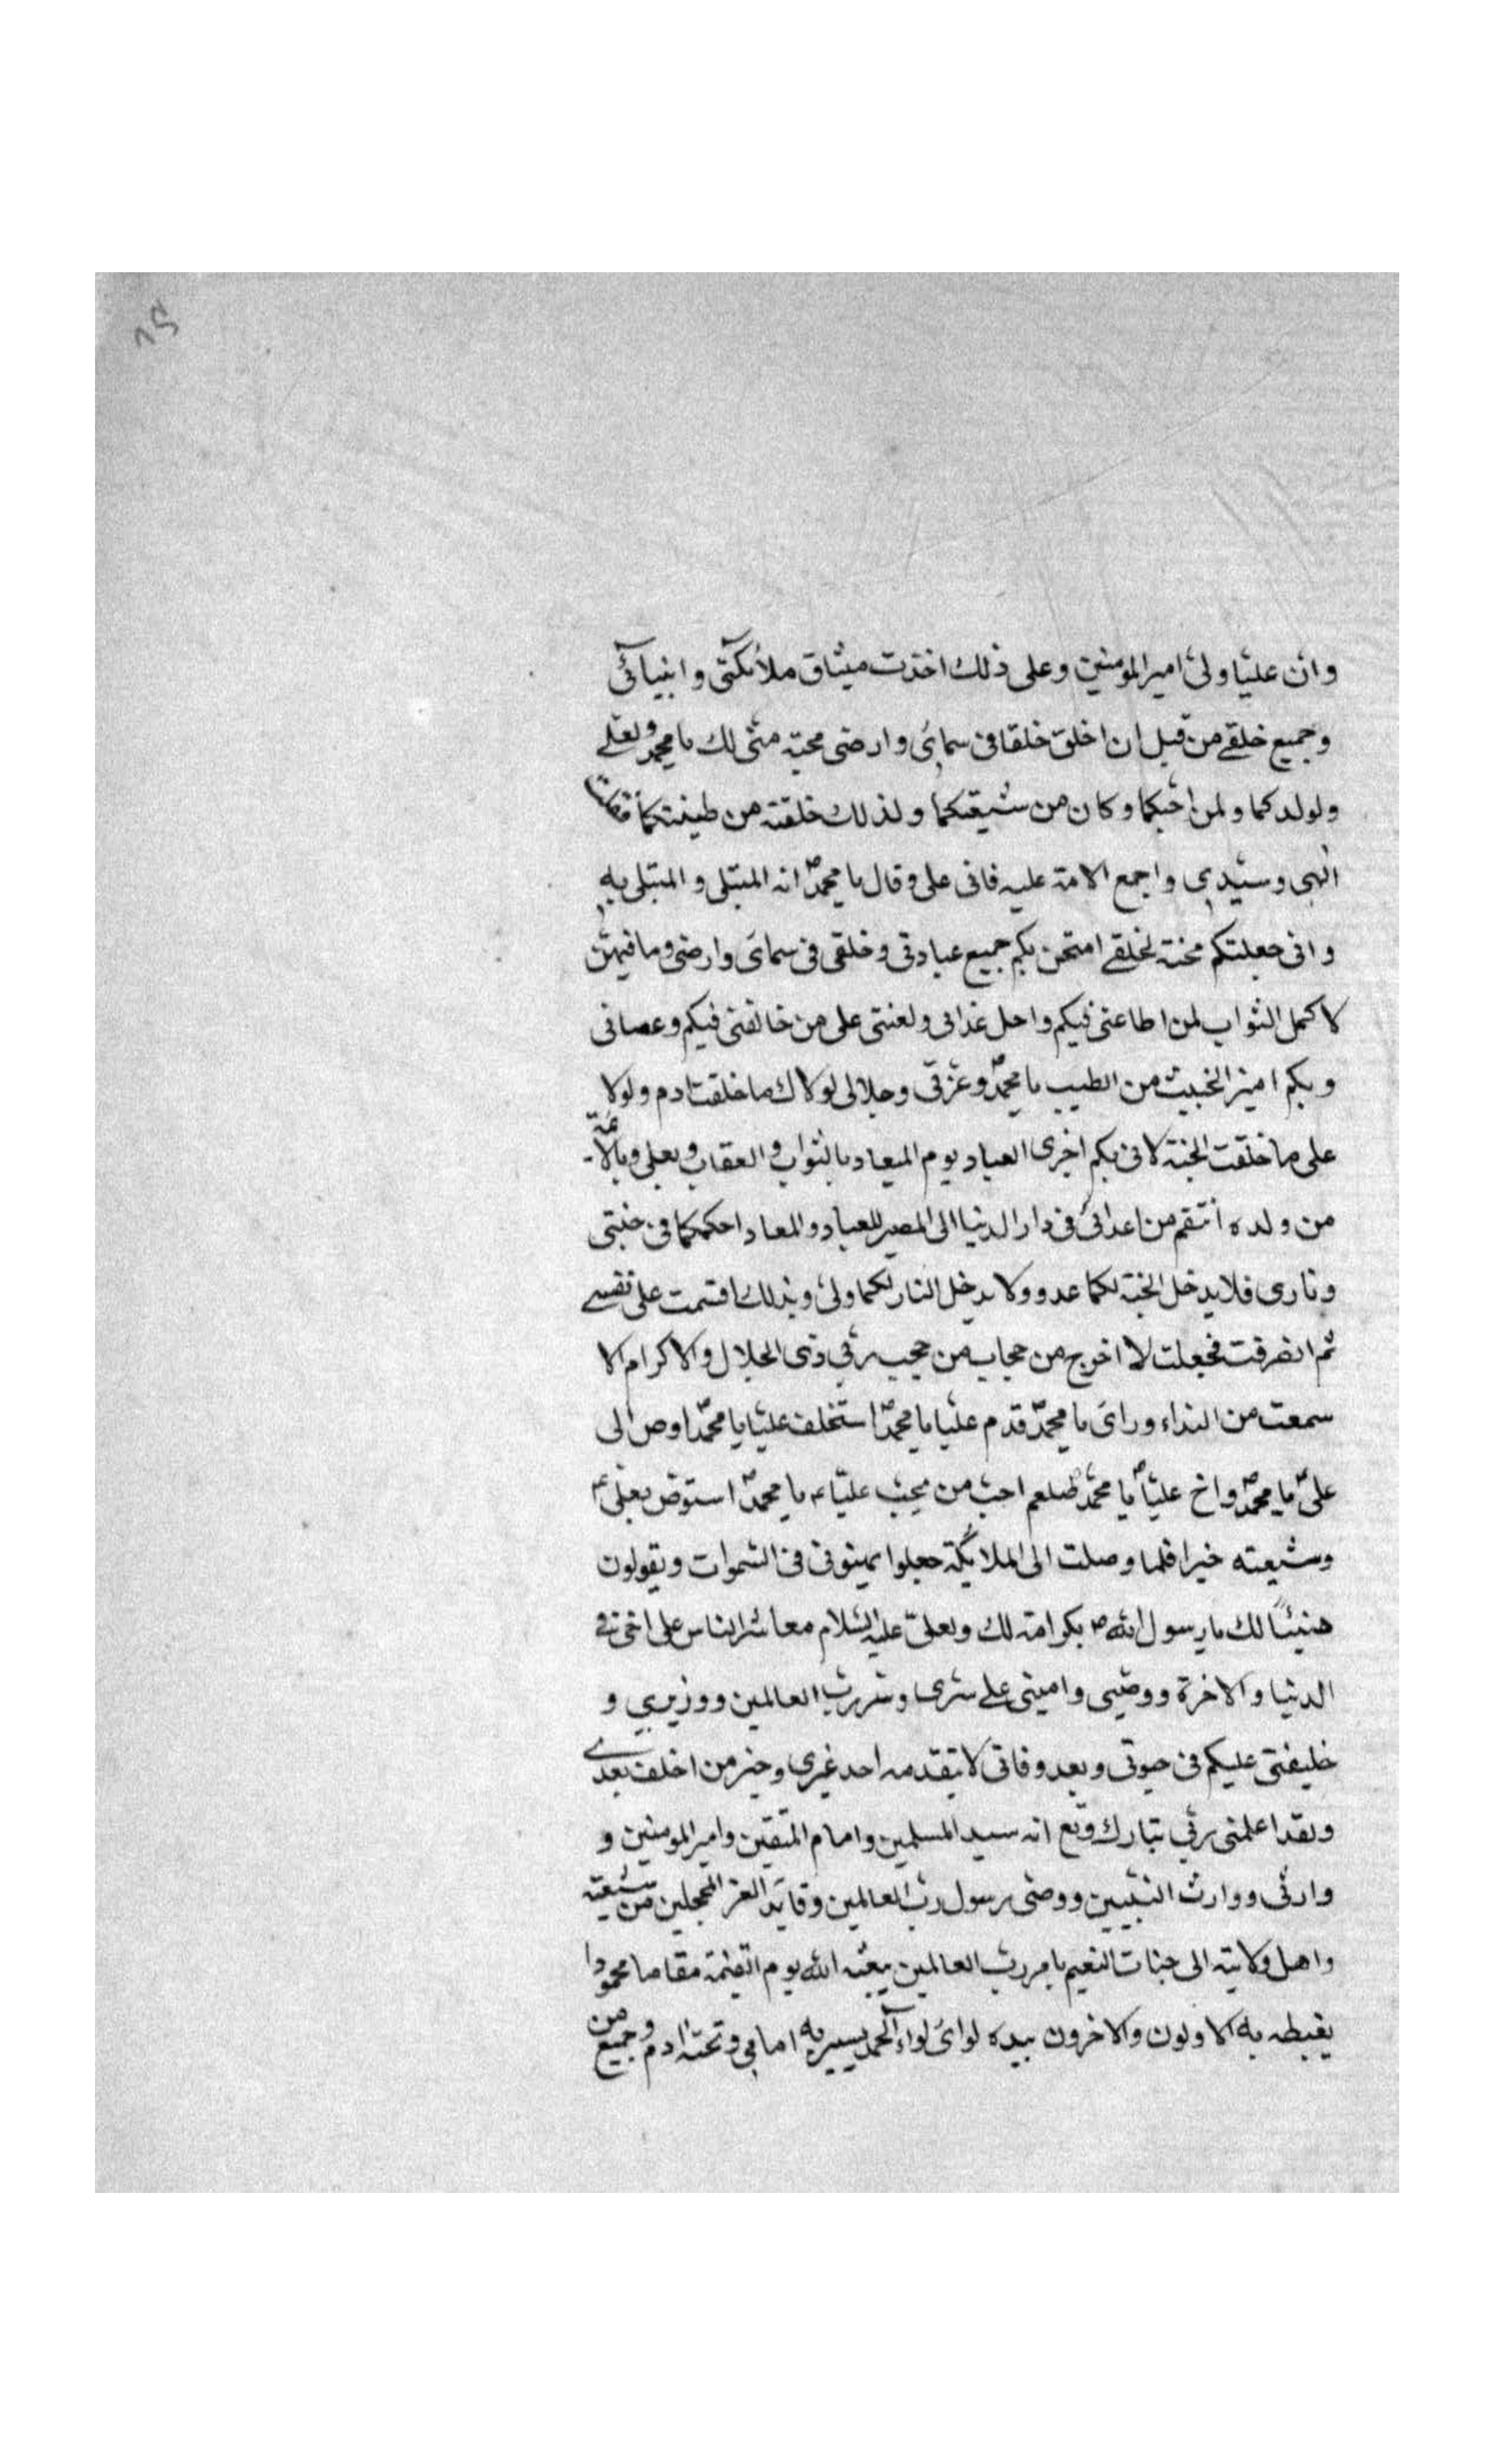 وان عليّا وليّ امير المومنين وعلى ذلك اخذت ميثاق ملائكتى و انبيائى
وجميع خلقے من قبل ان اخلق خلقا فى سمائى وارضى محبة منّى لك يا محمد ولعلے
ولولدكما ولمن احبّكما وكان من شيعتكما ولذلك خلقته من طينتكما فقلت
الهى وسيّدى واجمع الامة عليه فابى على وقال يا محمدص انه المبتلى والمبتلى به
وانى جعلتكم محنة لخلقے امتحن بكم جميع عبادتى وخلقى فى سمائى وارضى وما فيهنّ
لاكمل الثواب لمن اطاعنى فيكم واحل عذابى ولعنتى على من خالفنى فيكم وعصانى
وبكم اميز الخبيث من الطيب يا محمدص وعزتى وجلالى لولاك ما خلقت ادم ولولا
على ما خلقت الجنة لانى بكم اجزى العباد يوم المعاد بالثواب والعقاب وبعلى وبالائمة
من ولده انتقم من اعدائى فى دار الدنيا الى المصير للعباد والمعاد احكمكما فى جنتى
ونارى فلا يدخل الجنة لكما عدو ولا يدخل النار لكما ولىّ وبذلك اقسمت على نفسے
ثم انصرفت فجعلت لا اخرج من حجاب من حجب ربى ذى الجلال والاكرام الا
سمعت من النداء ورائى يا محمدص قدم عليّا يا محمدص استخلف عليّا يا محمّد اوص الى
علىّ يا محمدص واخ عليّا يا محمّد صلعم احبّ من يحبّ عليّا يا محمدص استوص بعلىّ
وشيعته خيرا فلما وصلت الى الملائكة جعلوا يهنونى فى السّموات ويقولون
هنيئًا لك يا رسول اللهص بكرامة لك ولعلىّ عليه السّلام معاشر الناس على اخى فے
الدنيا والاخرة ووصيى وامينى علے سرى وسر ربّ العالمين ووزيرى و
خليفتى عليكم فى حيوتى وبعد وفاتى لا يتقدمه احد غيرى وخير من اخلف بعدے
ولقد اعلمنى ربى تبارك وتع انه سيد المسلمين وامام المتّقين وامير المومنين و
وارثى ووارث النبيّين ووصىّ رسول ربّ العالمين وقايد الغر المحجلين من شيعته
واهل ولايته الى جنات النعيم بامر ربّ العالمين يبعثه الله يوم القيمة مقاما محمودا
يغبطه به الاولون والاخرون بيده لوائى لواء الحمد يسير به امامى وتحته ادم وجميع من